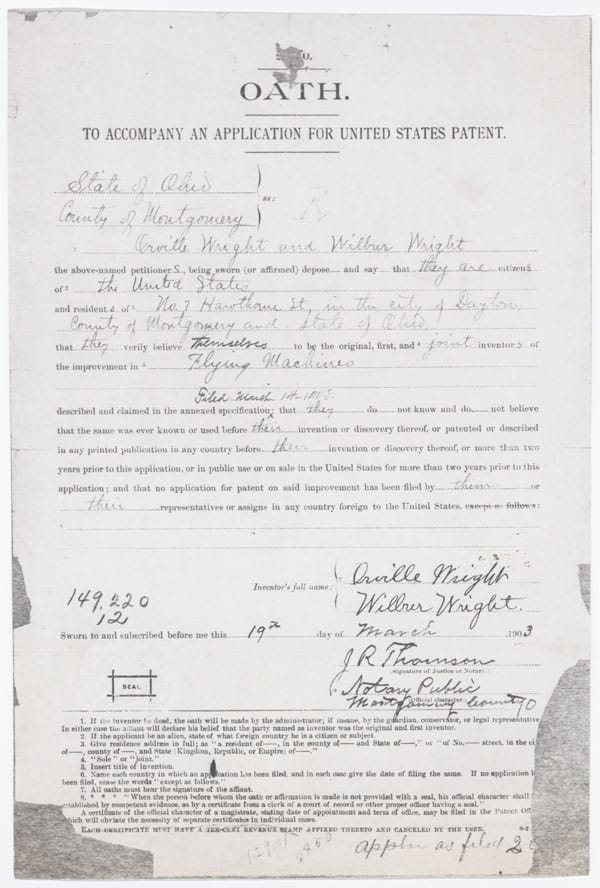 OATH.
TO ACCOMPANY AN APPLICATION FOR UNITED STATES PATENT.
State of Ohio
ss:
County of Montgomery
Orville Wright and Wilbur Wright
the above-named petitioners, being sworn (or affirmed) depose.... and say.... that they are citizens
of the United States
and resident.s. of No. 7 Hawthorne St., in the city of Dayton,
County of Montgomery and State of Ohio,
that they verily believe themselves to be the original, first, and joint inventors of
the improvement in Flying Machines
Filed
described and claimed in the annexed specification; that they do..... not know and do...... not believe
that the same was ever known or used before their invention or discovery thereof, or patented or described
in any printed publication in any country before their invention or discovery thereof, or more than two
years prior to this application, or in public use or on sale in the United States for more than two years prior to this
application; and that no application for patent on said improvement has been filed by them or
their representatives or assigns in any country foreign to the United States, except as follows:
Inventor's full name: Orville Wright
Wilbur Wright.
149,220
12
Sworn to and subscribed before me this 19th day of March, 1903
J R Thomson
(Signature of Justice or Notary)
SEAL
Notary Public
Montgomery County O
(Official character)
1. If the inventor be dead, the oath will be made by the administrator; if insane, by the guardian, conservator, or legal representative
In either case the affiant will declare his belief that the party named as inventor was the original and first inventor.
2. If the applicant be an alien, state of what foreign country he is a citizen or subject.
3. Give residence address in full; as "a resident of ——, in the county of —— and State of ——," or "of No. —— street, in the ci
of ——, county of ——, and State [Kingdom, Republic, or Empire] of ——."
4. "Sole" or "joint."
5. Insert title of invention.
6. Name each country in which an application has been filed, and in each case give the date of filing the same. If no application
been filed, erase the words "except as follows."
7. All oaths must bear the signature of the affiant.
8. * * * "When the person before whom the oath or affirmation is made is not provided with a seal, his official character shall
established by competent evidence, as by a certificate from a clerk of a court of record or other proper officer having a seal."
A certificate of the official character of a magistrate, stating date of appointment and term of office, may be filed in the Patent Off
which will obviate the necessity of separate certificates in individual cases.
EACH CERTIFICATE MUST HAVE A TEN-CENT REVENUE STAMP AFFIXED THERETO AND CANCELED BY THE USER. 9-2
appln as filed 2